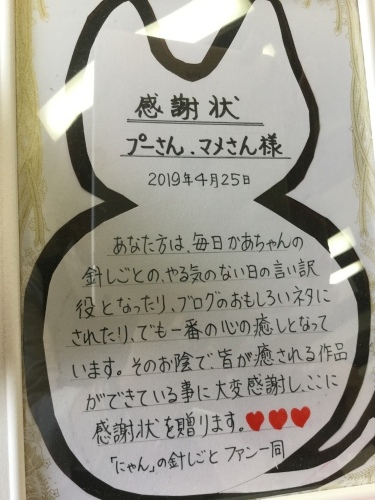 感謝状
プーさん、マメさん様
2019年4月25日
あなた方は、毎日かあちゃんの
針しごとの、やる気のない日の言い訳
役となったり、ブログのおもしろいネタに
されたり、でも一番の心の癒しとなって
います。そのお陰で、皆が癒される作品
ができている事に大変感謝し、ここに
感謝状を贈ります。♥♥♥
「にゃん」の針しごと ファン一同